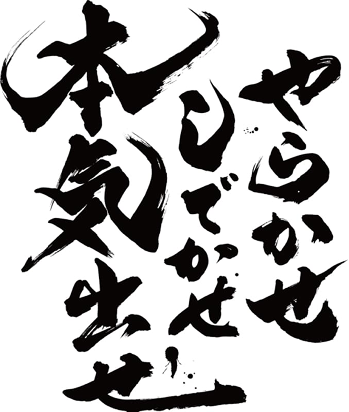 やらかせ
しでかせ！
本気出せ